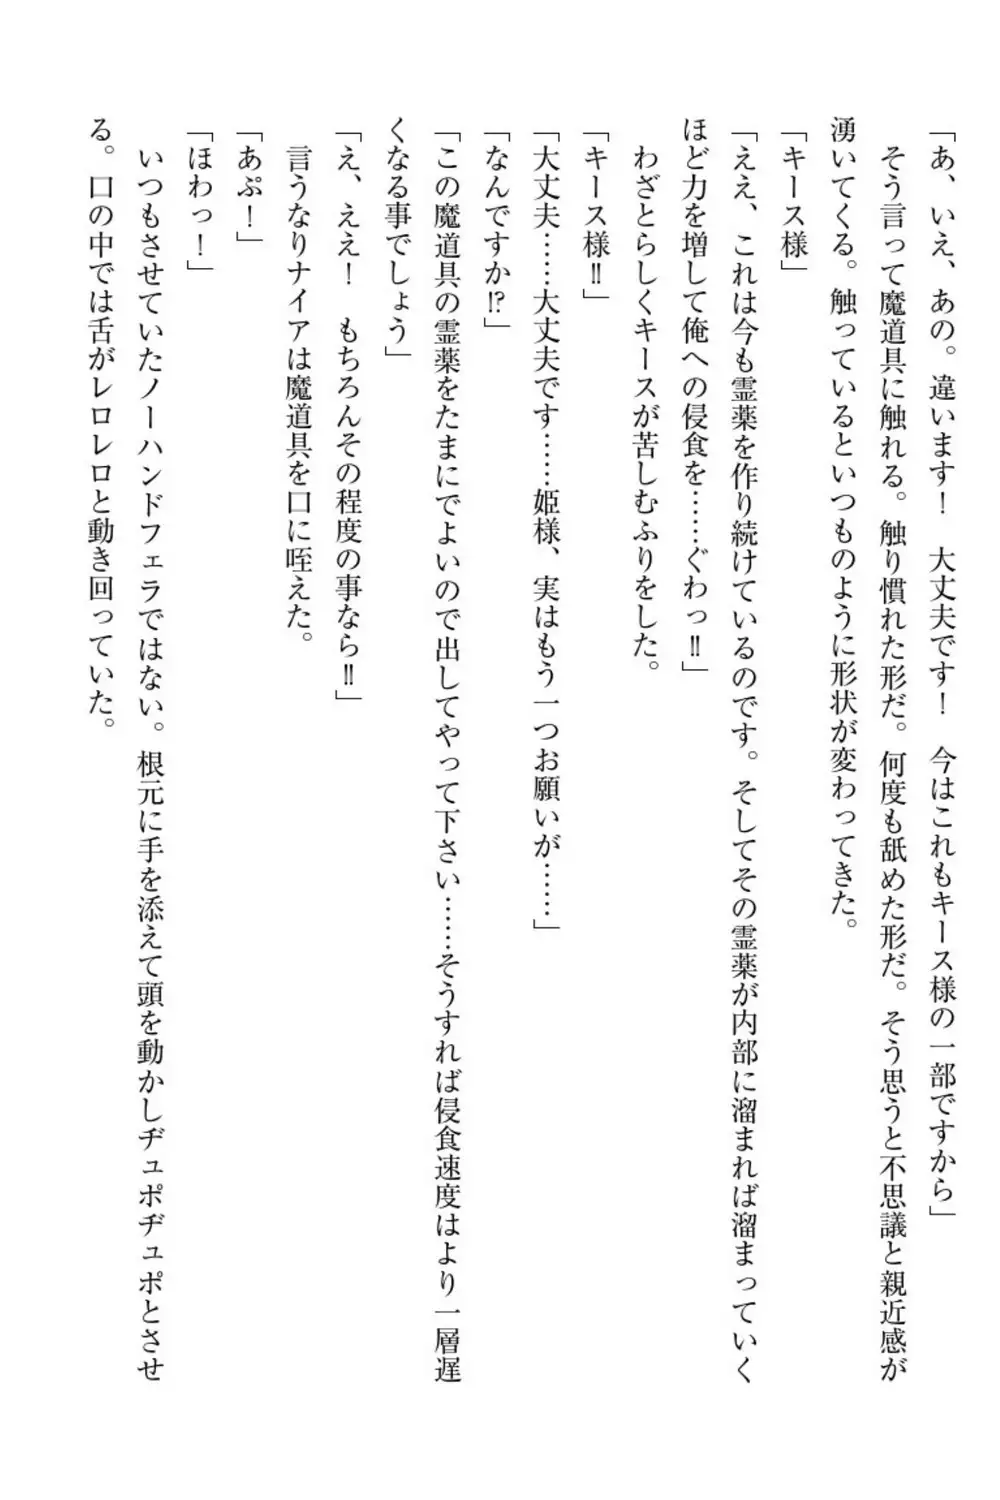 「あ、いえ、あの。違います！　大丈夫です！　今はこれもキース様の一部ですから」
　そう言って魔道具に触れる。触り慣れた形だ。何度も舐めた形だ。そう思うと不思議と親近感が
湧いてくる。触っているといつものように形状が変わってきた。
「キース様」
「ええ、これは今も霊薬を作り続けているのです。そしてその霊薬が内部に溜まれば溜まっていく
ほど力を増して俺への侵食を……ぐわっ‼」
　わざとらしくキースが苦しむふりをした。
「キース様‼」
「大丈夫……大丈夫です……姫様、実はもう一つお願いが……」
「なんですか⁉」
「この魔道具の霊薬をたまにでよいので出してやって下さい……そうすれば侵食速度はより一層遅
くなる事でしょう」
「え、ええ！　もちろんその程度の事なら‼」
　言うなりナイアは魔道具を口に咥えた。
「あぷ！」
「ほわっ！」
　いつもさせていたノーハンドフェラではない。根元に手を添えて頭を動かしヂュポヂュポとさせ
る。口の中では舌がレロレロと動き回っていた。